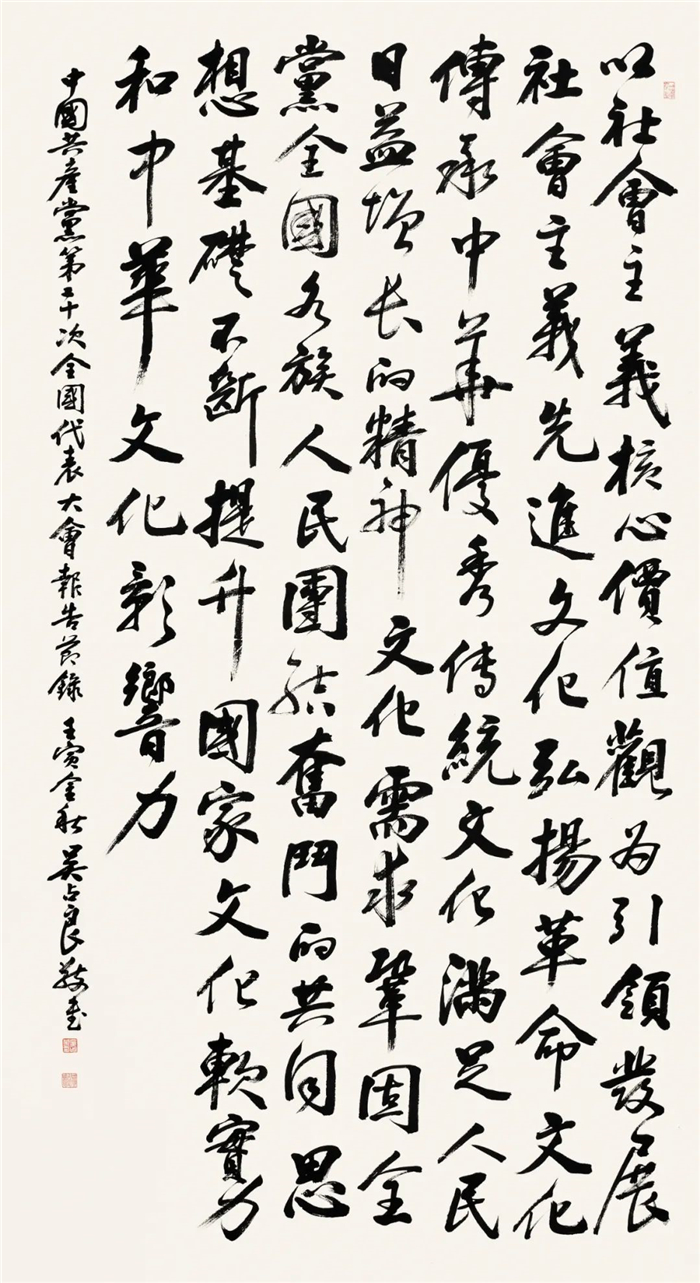 以社會主義核心價值觀為引領發展
社會主義先進文化弘揚革命文化
傳承中華優秀传統文化滿足人民
日益增长的精神文化需求鞏固全
黨全國各族人民團結奮鬥的共同思
想基礎不斷提升國家文化軟實力
和中華文化影響力
中國共產黨第二十次全國代表大會報告節錄 壬寅金秋 吴占良敬書